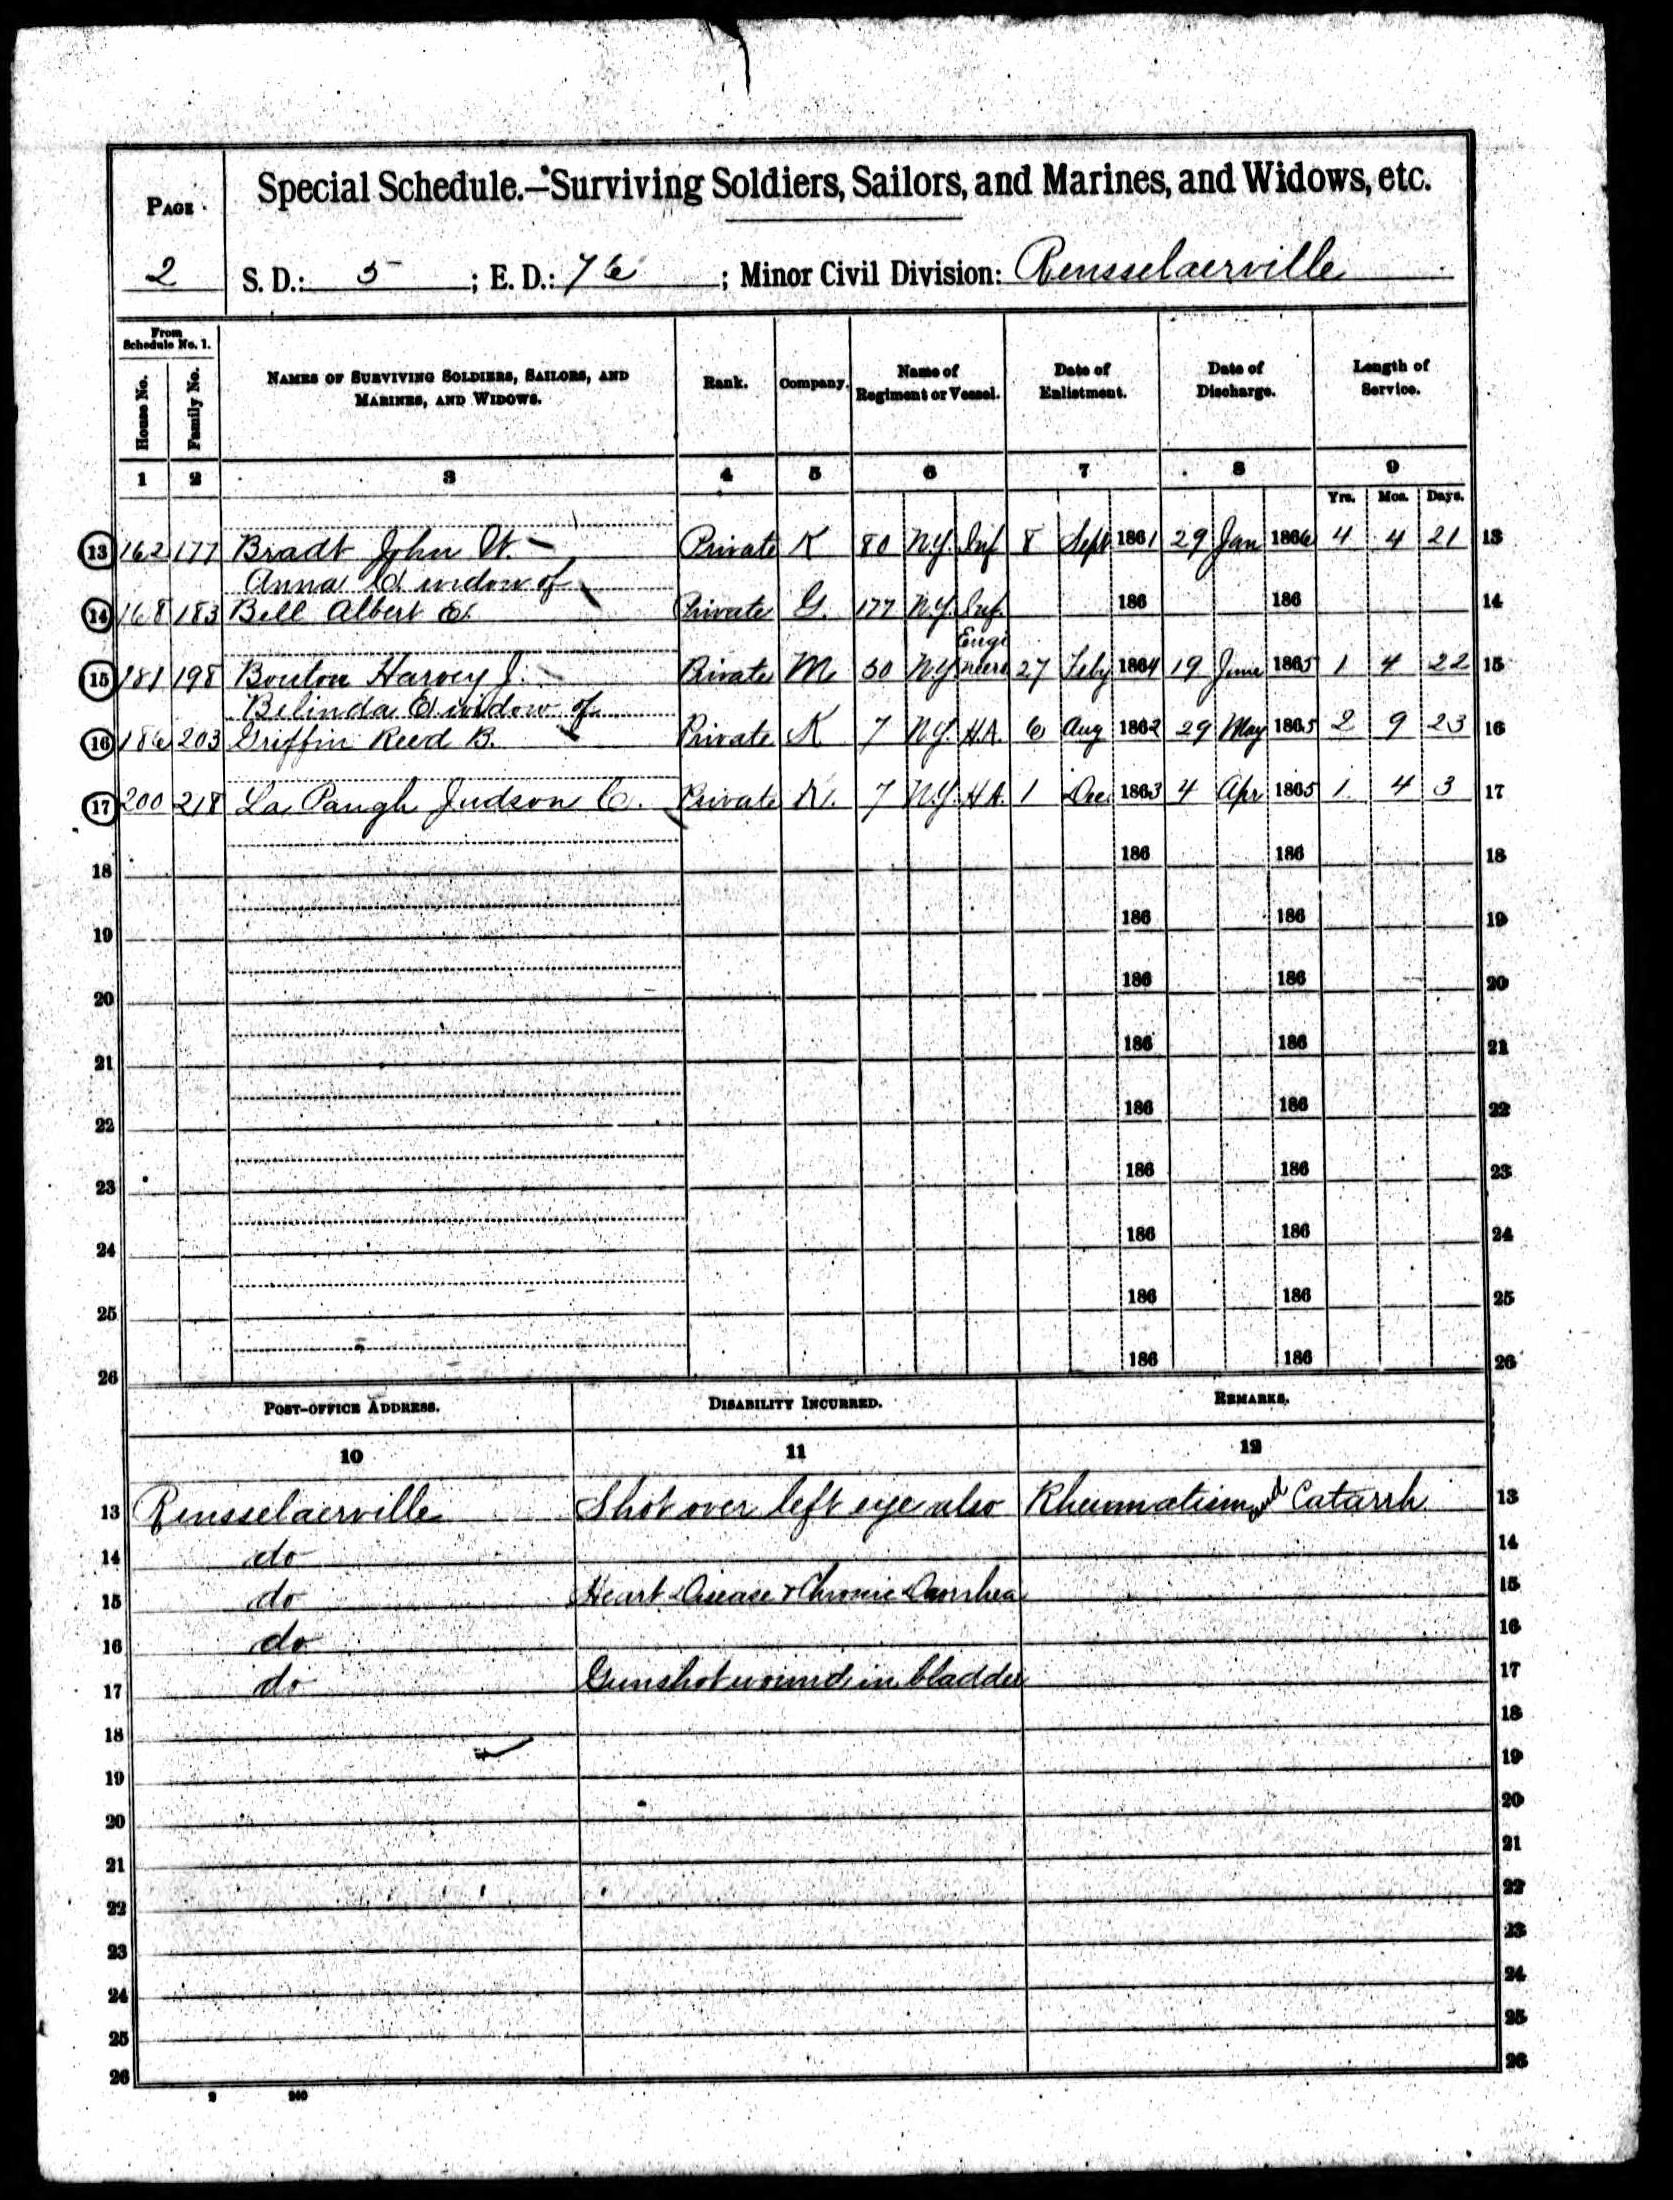 Page
Special Schedule.—Surviving Soldiers, Sailors, and Marines, and Widows, etc.
2 S. D.: 5 ; E. D.: 76 ; Minor Civil Division: Rensselaerville
From Schedule No. 1.
House No. Family No. Names of Surviving Soldiers, Sailors, and Marines, and Widows. Rank. Company. Name of Regiment or Vessel. Date of Enlistment. Date of Discharge. Length of Service.
1 2 3 4 5 6 7 8 9
Yrs. Mos. Days.
13 162 177 Bradt John W. Private K 80 N.Y. Inf 8 Sept 1861 29 Jan 1866 4 4 21 13
Anna C widow of
14 168 183 Bell Albert E. Private G. 177 N.Y. Inf. 186 186 14
Engi
15 181 198 Bouton Harvey J. Private M 50 N.Y. neers 27 Feby 1864 19 June 1865 1 4 22 15
Belinda E widow of
16 186 203 Griffin Reed B. Private K 7 N.Y. H.A. 6 Aug 1862 29 May 1865 2 9 23 16
17 200 218 La Paugh Judson C. Private K. 7 N.Y. H.A. 1 Dec 1863 4 Apr 1865 1 4 3 17
18 186 186 18
19 186 186 19
20 186 186 20
21 186 186 21
22 186 186 22
23 186 186 23
24 186 186 24
25 186 186 25
26 186 186 26
Post-office Address. Disability Incurred. Remarks.
10 11 12
13 Rensselaerville Shot over left eye also Rheumatism and Catarrh 13
14 do 14
15 do Heart Disease & Chronic Diarrhea 15
16 do 16
17 do Gunshot wound in bladder 17
18 18
19 19
20 20
21 21
22 22
23 23
24 24
25 25
26 26
2 240